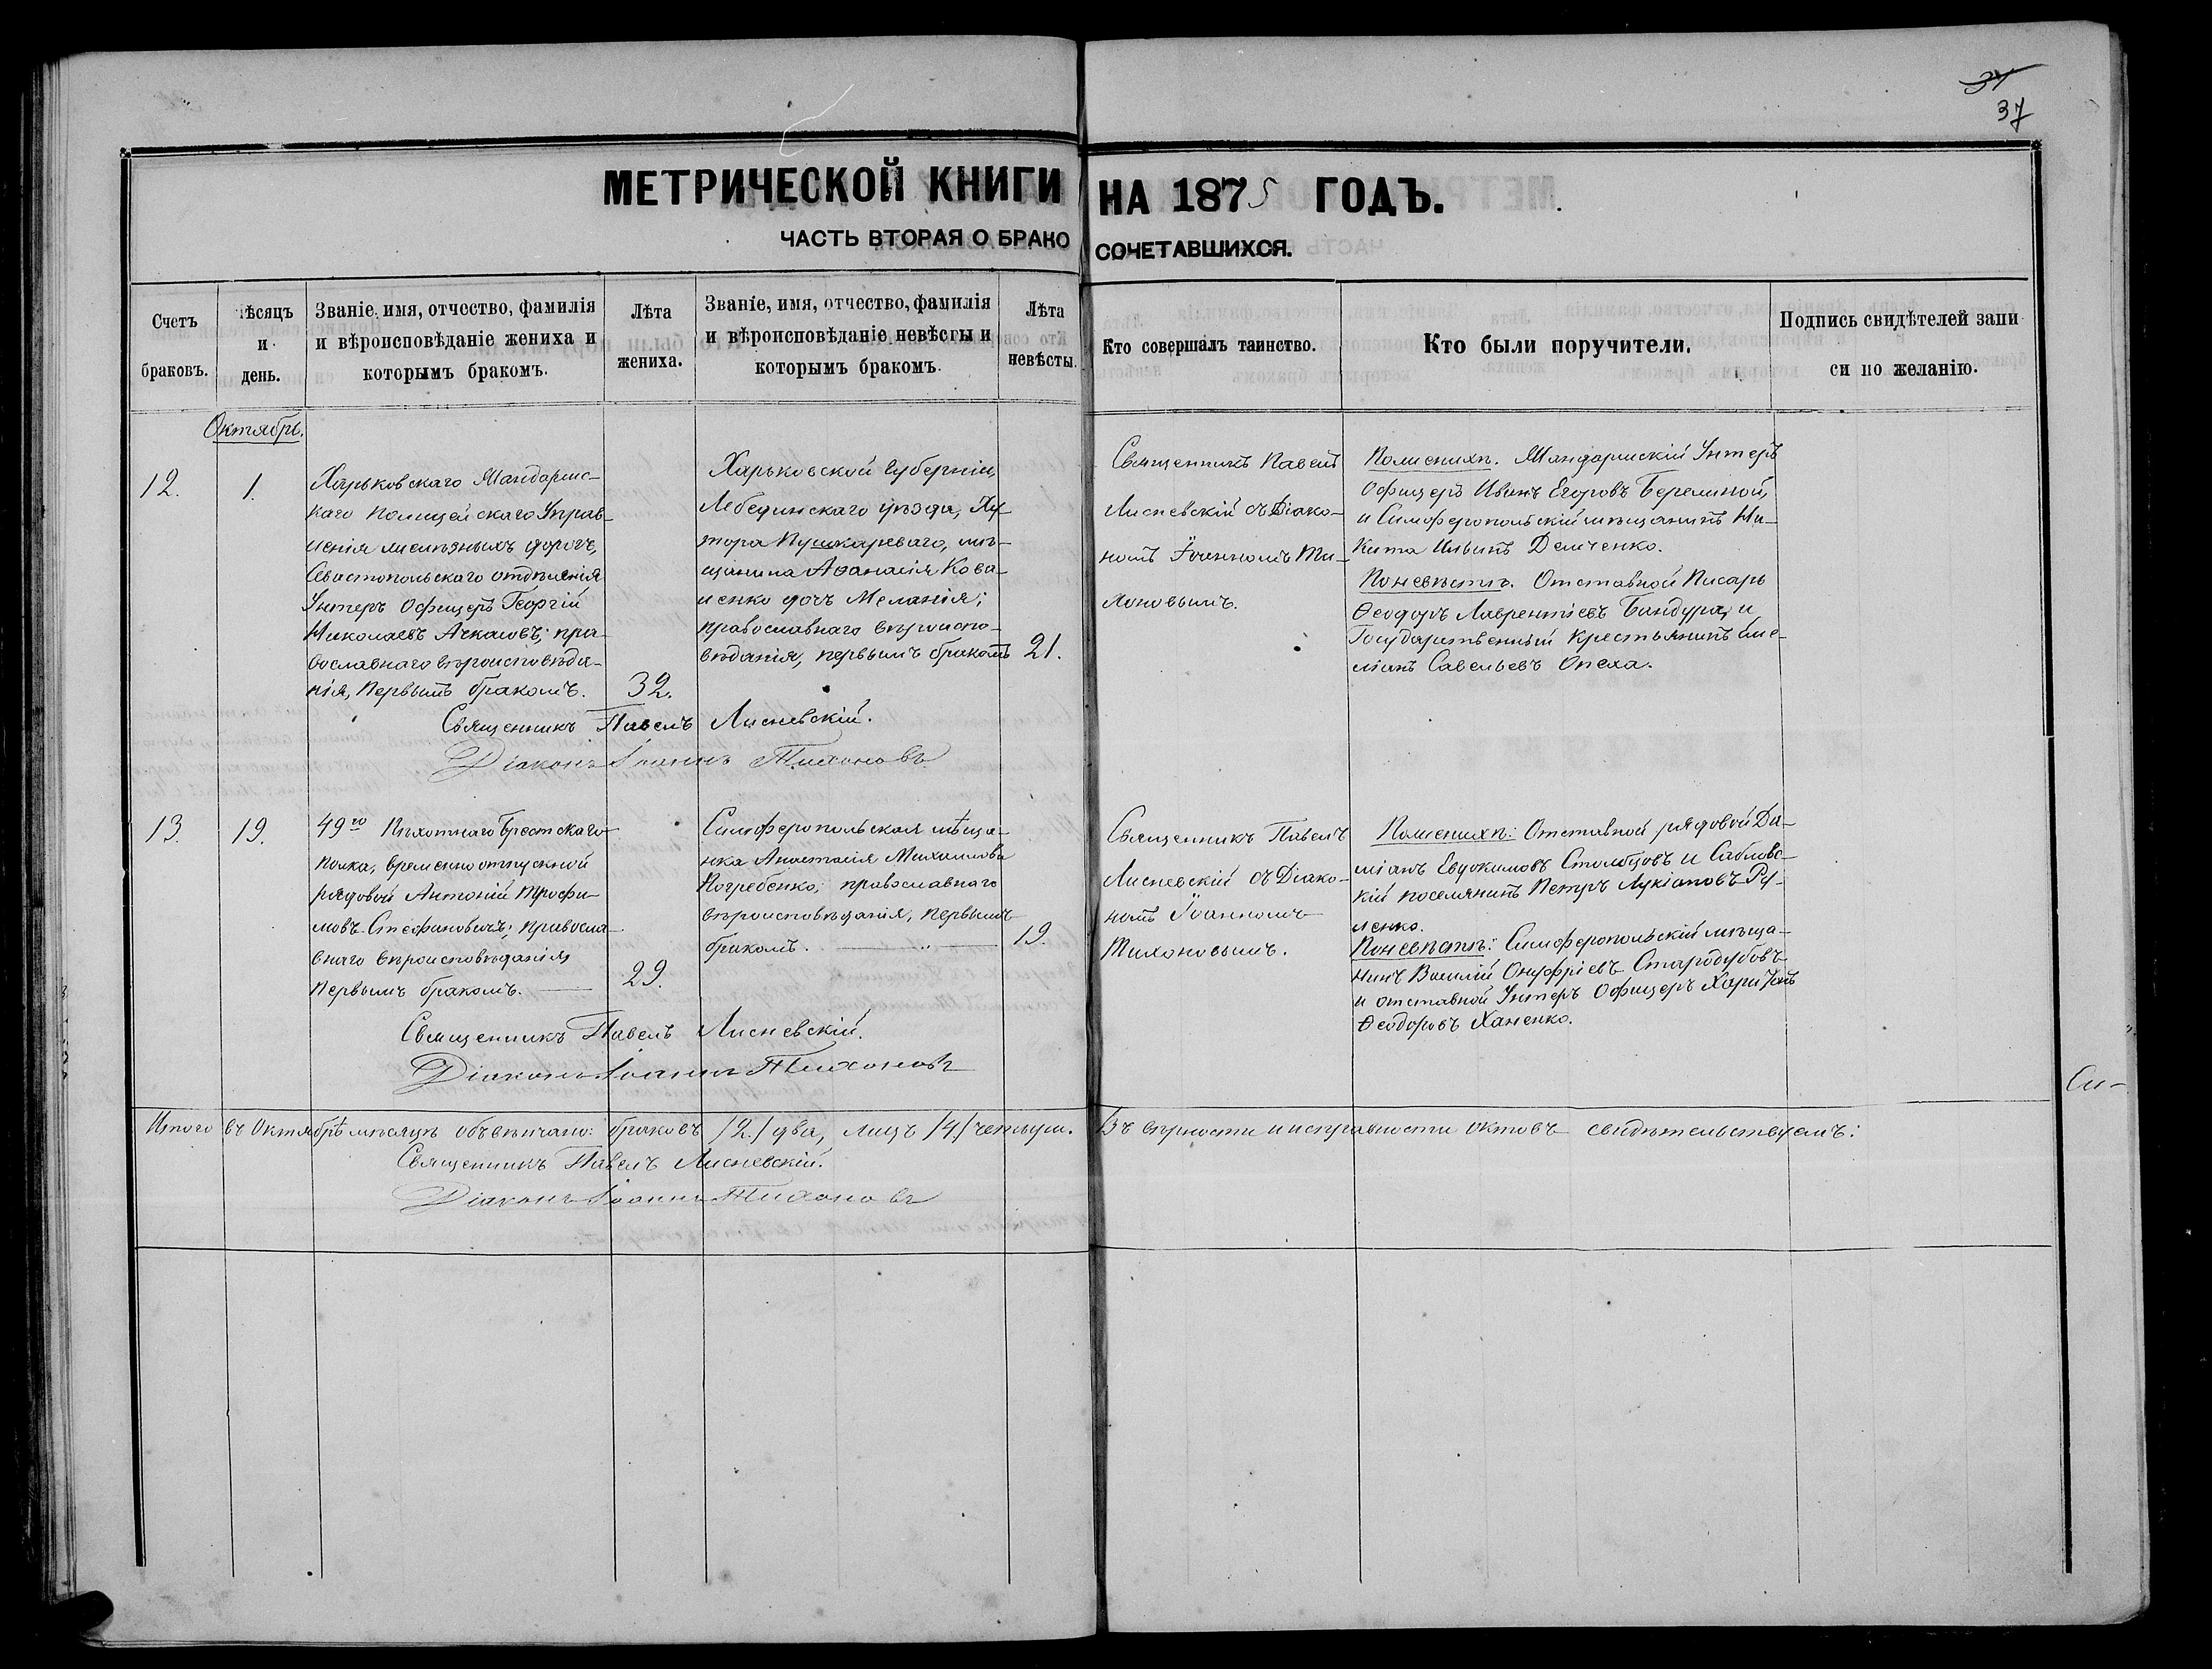 37
37
МЕТРИЧЕСКОЙ КНИГИ НА 1875 ГОДЪ.
ЧАСТЬ ВТОРАЯ О БРАКОСОЧЕТАВШИХСЯ.
Счетъ браковъ.
мѣсяцъ и день.
Званіе, имя, отчество, фамилія
и вѣроисповѣданіе жениха и
которымъ бракомъ.
Лѣта
жениха.
Званіе, имя, отчество, фамилія
и вѣроисповѣданіе невѣсты и
которымъ бракомъ.
Лѣта
невѣсты.
Кто совершалъ таинство.
Кто были поручители.
Подпись свидѣтелей запи
си по желанію.
Октябрь.
12.
1.
Харьковскаго Жандармс-
каго Полицейскаго Управ-
ленія желѣзныхъ дорогъ,
Севастопольскаго отдѣленія
Унтеръ Офицеръ Георгій
Николаевъ Ачкасовъ; пра-
вославнаго вѣроисповѣда-
нія, первымъ бракомъ.
32.
Харьковской Губерніи,
Лебединскаго уѣзда, Ху-
тора Пушкареваго, мѣ-
щанина Аѳанасія Кова-
ленко дочь Меланія;
православнаго вѣроиспо-
вѣданія, первымъ бракомъ
21.
Священникъ Павелъ
Лисневскій съ Діако-
номъ Іоанномъ Ти-
хоновымъ.
По женихѣ. Жандармскій Унтеръ
Офицеръ Иванъ Егоровъ Бережной,
и Симферопольскій мѣщанинъ Ни-
кита Ильинъ Демченко.
По невѣстѣ. Отставной Писарь
Ѳеодоръ Лаврентіевъ Бандура, и
Государственный крестьянинъ Еме-
ліанъ Савельевъ Опеха.
Священникъ Павелъ Лисневскій.
Діаконъ Іоаннъ Тихоновъ
13.
19.
49го Пѣхотнаго Брестскаго
полка, временно отпускной
рядовой Антоній Трофи-
мовъ Стефановичъ; правосла
внаго вѣроисповѣданія
первымъ бракомъ.
29.
Симферопольская мѣща-
нка Анастасія Михаилова
Погребенко; православнаго
вѣроисповѣданія, первымъ
бракомъ.
19.
Священникъ Павелъ
Лисневскій съ Діако-
номъ Іоанномъ
Тихоновымъ.
По женихѣ: Отставной рядовой Да-
міанъ Евдокимовъ Столбцовъ и Сабловс-
кій поселянинъ Петръ Лукіановъ Ру-
ленко.
По невѣстѣ: Симферопольскій мѣща-
нинъ Василій Онуфріевъ Стародубовъ
и отставной Унтеръ Офицеръ Харитонъ
Ѳеодоровъ Ханенко.
Священникъ Павелъ Лисневскій.
Діаконъ Іоаннъ Тихоновъ
Си-
Итого въ Октябрѣ мѣсяцѣ обвѣнчано: браковъ /2./ два, лицъ /4/ четыре. Въ вѣрности и исправности актовъ свидѣтельствуемъ:
Священникъ Павелъ Лисневскій.
Діаконъ Іоаннъ Тихоновъ